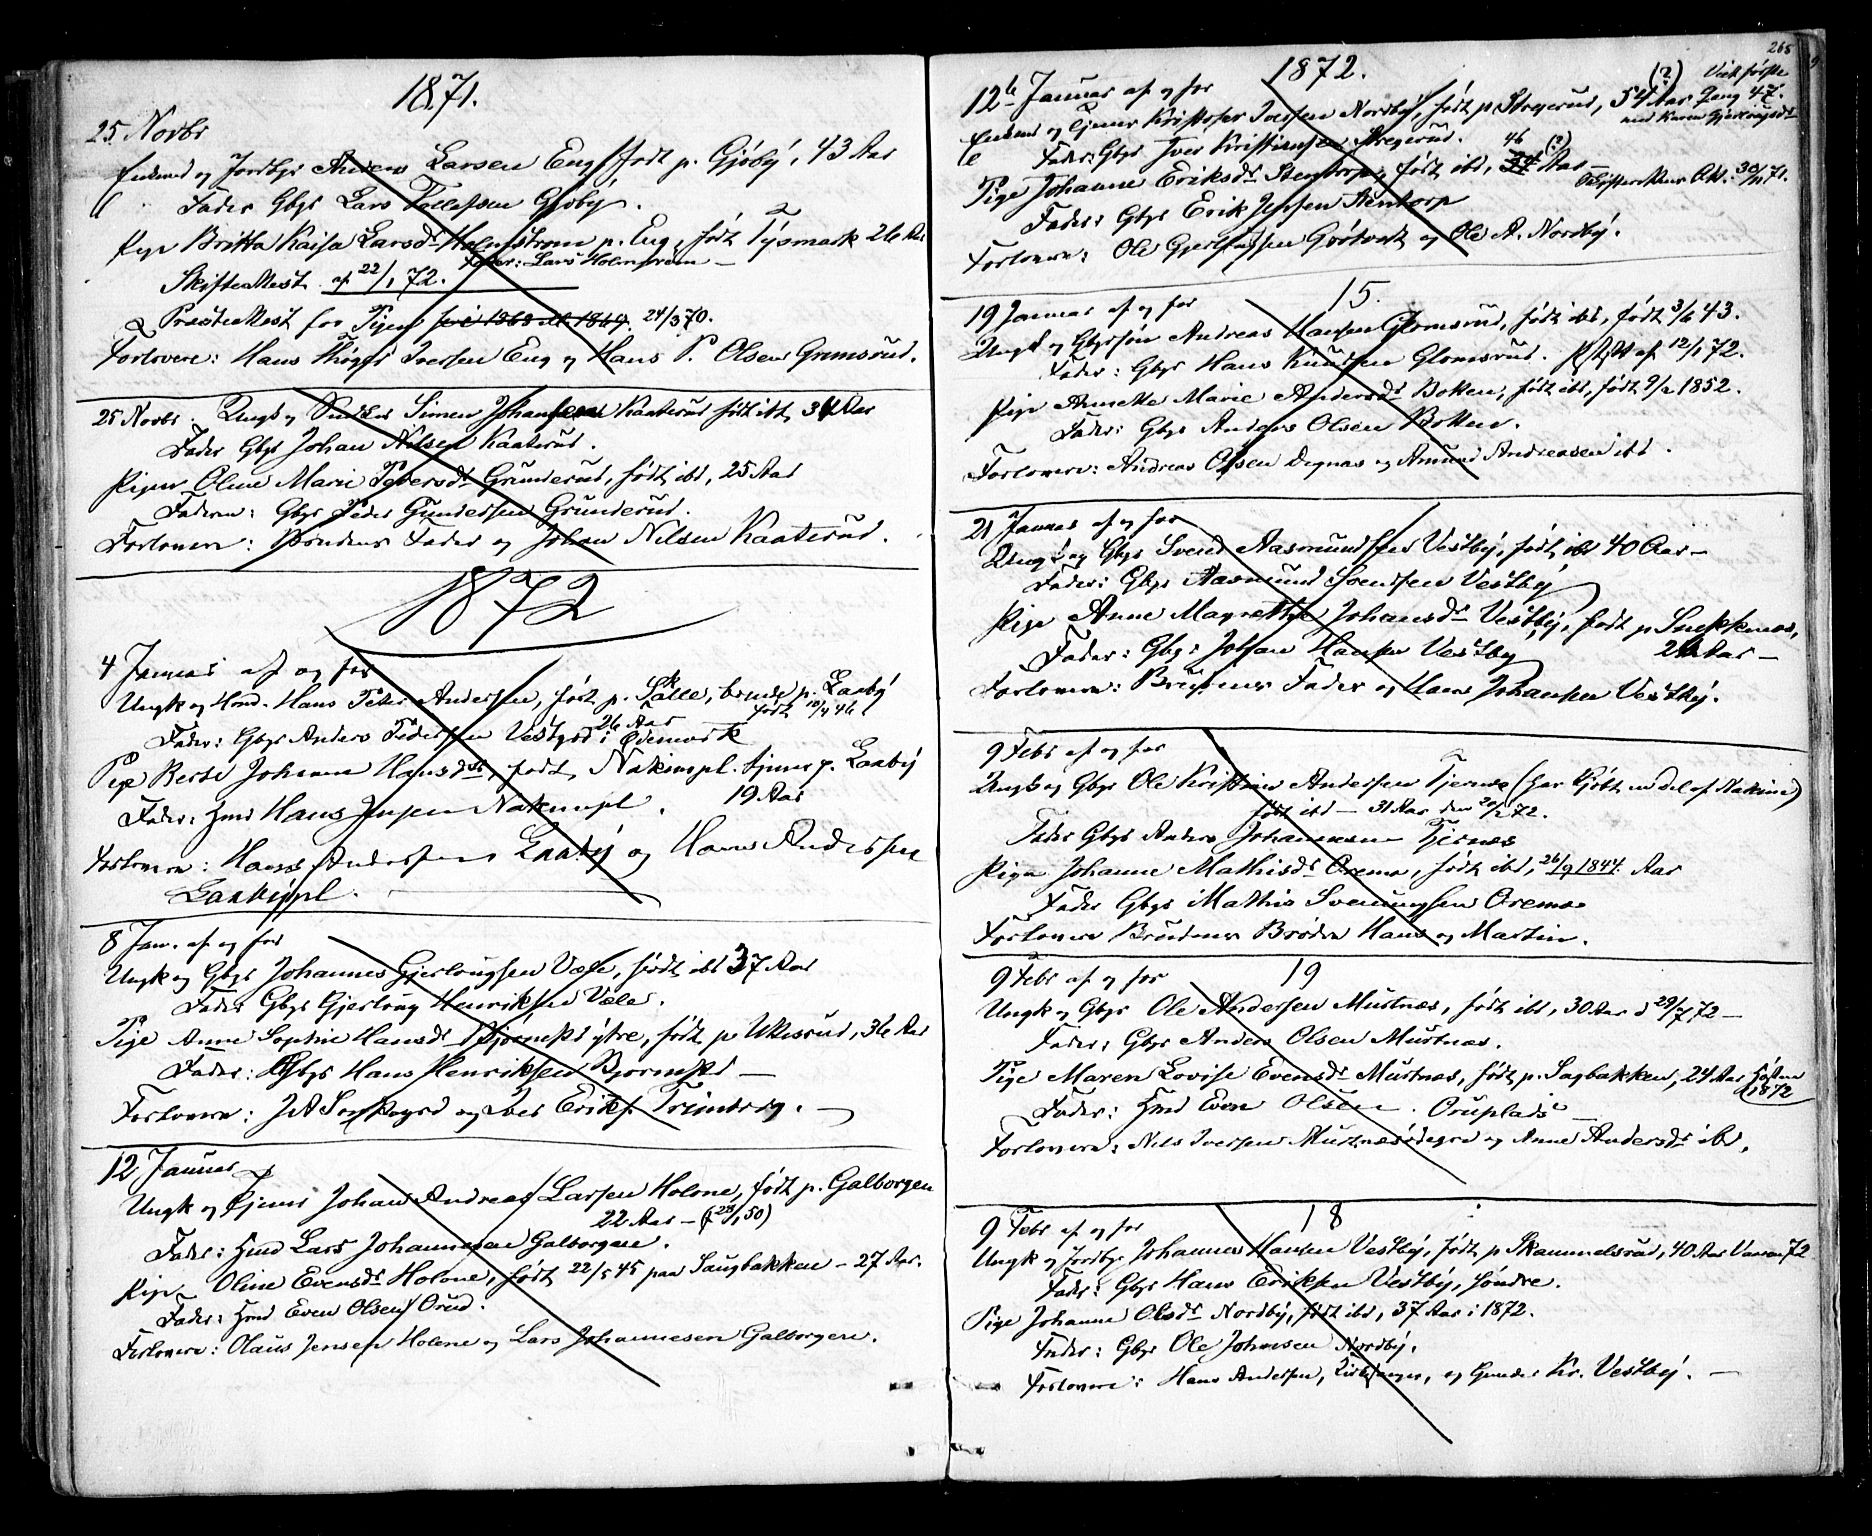 1871.
25 Novbr
Enkemd og Jordbgr Anders Larsen Eng, født p. Gjøby, 43 Aar
Fader Gbgr Lars Tollefsen Gjøby.
Pige Britta Kaisa Larsdr Holmstrøm p. Eng, født Tysmark 26 Aar
Fader: Lars Holmstrøm —
Skifteattest af 22/1 72.
Præsteattest for Pigen 24/3 70.
Forlovere: Hans Iversen Eng og Hans P. Olsen Grimsrud.
25 Novbr. Ungk og Simen Johansen Kaaterud født ibd, 34 Aar
Fader Gbgr Johan Nilsen Kaaterud.
Pigen Oline Marie Pedersdr Grunderud, født ibd, 25 Aar
Faderen: Gbgr Peder Gundersen Grunderud.
Forlovere: Brudens Fader og Johan Nilsen Kaaterud.
1872
4 Januar af og for
Ungk og Hmd. Hans Peter Andersen, født p. boende p. Laaby
26 Aar født 10/4 46
Fader: Gbgr Anders Pedersen Vestgard i Ødemark
Pige Berte Johanne Hansdr, født Nakimpl. tjener p. Laaby
19 Aar
Fader: Hmd Hans Jensen Nakimpl.
Forlovere: Hans Andersen Laaby og Hans Andersen
Laabypl.
8 Jan. af og for
Ungk og Gbgr Johannes Gjerlougsen Væle, født ibd 37 Aar
Fader Gbgr Gjerloug Henriksen Væle.
Pige Anne Sophie Hansdr ytre, født p Ukesrud, 36 Aar
Fader: Gbgr Hans Henriksen —
Forlovere: og Iver Eriks.
12 Januar
Ungk og Tjener Johan Andreas Larsen Holone, født p. Galborgen
22 Aar — (f 28/1 50)
Fader: Hmd Lars Johannesen Galborgen.
Pige Oline Evensdr Holone, født 22/5 45 paa Saugbakken — 27 Aar.
Fader: Hmd Even Olsen Orud.
Forlovere: Olaus Jensen Holone og Lars Johannesen Galborgen.
268
1872.
12te Januar af og for
(?) Viet første Gang 47.
Enkemd og Tjener Kristoffer Iversen Nordby, født p. Stegerud, 54 Aar
Fader: Gbgr Iver Kristiansen Stegerud.
46 (?)
Pige Johanne Eriksdr Stentorp, født ibd, Aar —
Skifteattest 30/11 71.
Fader: Gbgr Erik Jensen Stentorp
Forlovere: Ole Gjerlufsen Grøtvet og Ole A. Nordby.
15.
19 Januar af og for
Ungk og Gbgrsøn Andreas Hansen Glomsrud, født ibd, født 3/6 43.
Fader: Gbgr Hans Knudsen Glomsrud. af 12/1 72.
Pige Annette Marie Andersdr Boken, født ibd, født 9/2 1852.
Fader: Gbgr Anders Olsen Boken.
Forlovere: Andreas Olsen Degnes og Amund Andreasen ibd.
21 Januar af og for
Ungk og Gbgr Svend Aasmundsen Vestby, født ibd 40 Aar —
Fader: Gbgr Aasmund Svendsen Vestby
Pige Anne Magrethe Johansdr Vestby, født p Snekknes,
26 Aar —
Fader: Gbgr Johan Hansen Vestby
Forlovere: Brudens Fader og Hans Johansen Vestby.
9 Febr af og for
Ungk og Gbgr Ole Kristian Andersen Tjernes (har kjøbt en del af Nakim)
født ibd — 31 Aar den 20/2 72.
Fader Gbgr Anders Johannesen Tjernes
Pige Johanne Mathisdr Oremo, født ibd, 26/9 1844. Aar
Fader Gbgr Mathis Svenungsen Oremo
Forlovere Brudens Brødre Hans og Martin.
19
9 Febr af og for
Ungk og Gbgr Ole Andersen Mustnæs, født ibd, 30 Aar d 29/7 72 —
Fader: Gbgr Anders Olsen Mustnæs.
Pige Maren Lovise Evensdr Mustnæs, født p. Sagbakken, 24 Aar Høsten
1872
Fader: Hmd Even Olsen Oruplads —
Forlovere: Nils Iversen Mustnæs og Anne Andersdr ibd.
18
9 Febr af og for
Ungk og Jordbgr Johannes Hansen Vestby, født p Skammelsrud, 40 Aar Vaaren 72
Fader: Gbgr Hans Eriksen Vestby, søndre.
Pige Johanne Olsdr Nordby, født ibd, 37 Aar i 1872.
Fader: Gbgr Ole Johnsen Nordby.
Forlovere: Hans Andersen, Kirkesanger, og Gunder Kr. Vestby. —